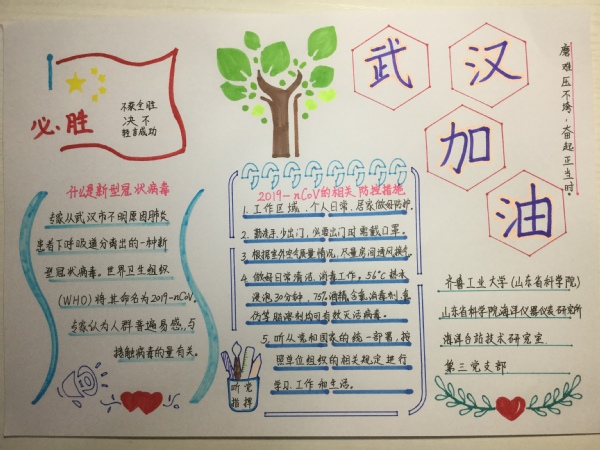 必胜
不获全胜
决不
轻言成功
武汉
加
油
磨难压不垮,奋起正当时。
什么是新型冠状病毒
专家从武汉市不明原因肺炎
患者下呼吸道分离出的一种新
型冠状病毒。世界卫生组织
(WHO)将其命名为2019-nCoV。
专家认为人群普遍易感,与
接触病毒的量有关。
2019-nCoV的相关防控措施
1、工作区域、个人日常、居家做好防护。
2、勤洗手,少出门,必要出门时需戴口罩。
3、根据室外空气质量情况,尽量房间通风换气。
4、做好日常清洁、消毒工作。56℃热水
浸泡30分钟,75%酒精,含氯消毒剂,氯
仿等脂溶剂均可有效灭活病毒。
5、听从党和国家的统一部署,按
照单位组织的相关规定进行
学习、工作和生活。
听党
指挥
齐鲁工业大学(山东省科学院)
山东省科学院海洋仪器仪表研究所
海洋台站技术研究室
第三党支部